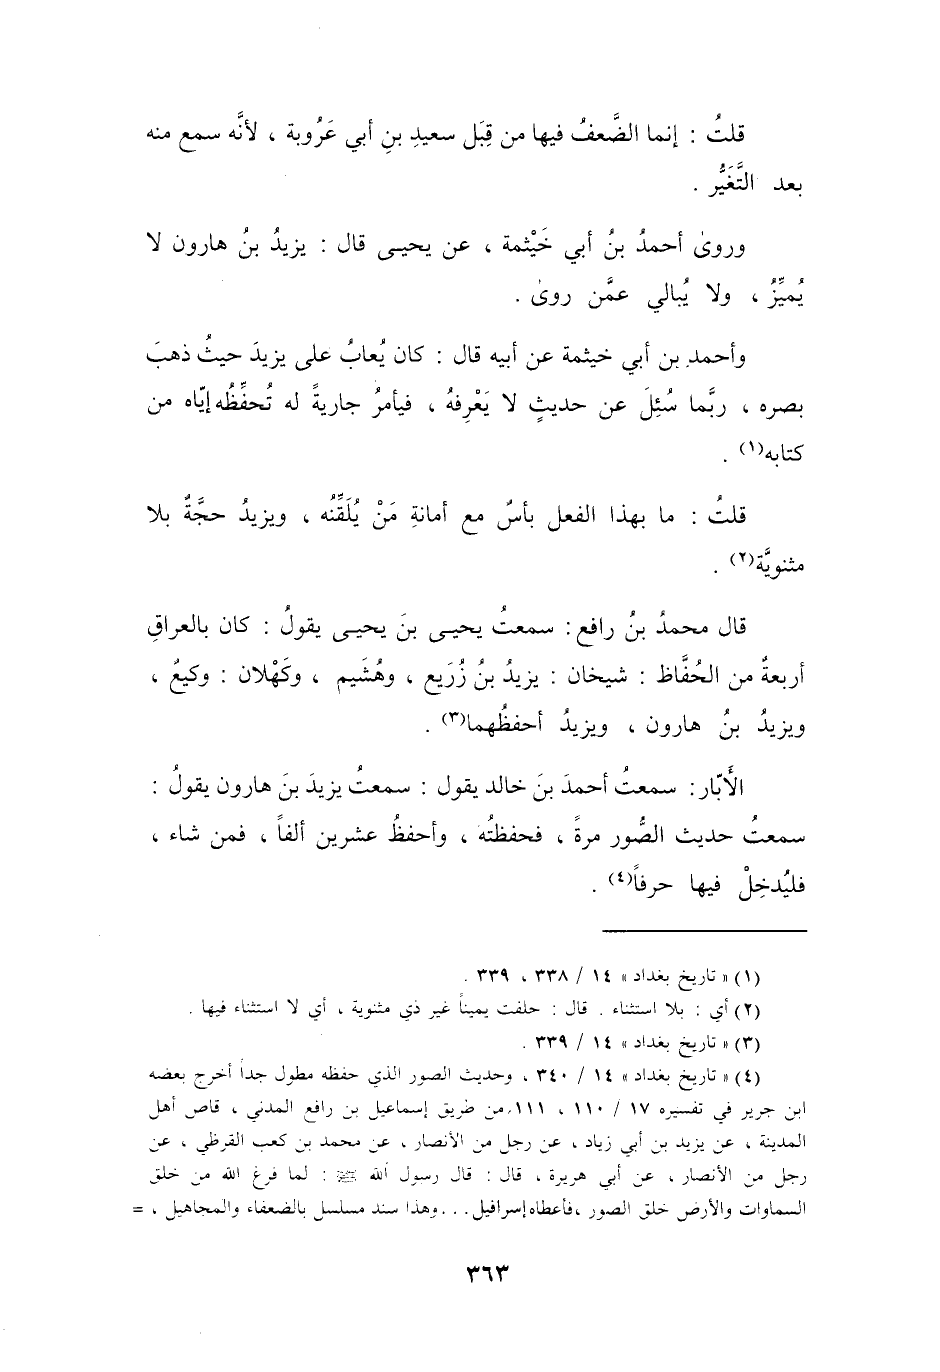 قلتُ : إنما الضَّعفُ فيها من قِبَل سعيدِ بنِ أبي عَرُوبة ، لأنَّه سمع منه
بعد التَّغَيُّر .
وروىٰ أحمدُ بنُ أبي خَيْثمة ، عن يحيى قال : يزيدُ بنُ هارون لا
يُميِّزُ ، ولا يُبالي عمَّن روىٰ .
وأحمد بن أبي خيثمة عن أبيه قال : كان يُعابُ على يزيدَ حيثُ ذهبَ
بصره ، ربَّما سُئِلَ عن حديثٍ لا يَعْرِفهُ ، فيأمرُ جاريةً له تُحفِّظُه إيّاه من
كتابه(١) .
قلتُ : ما بهذا الفعل بأسٌ مع أمانةِ مَنْ يُلَقِّنُه ، ويزيدُ حجَّةٌ بلا
مثنويَّة(٢) .
قال محمدُ بنُ رافع : سمعتُ يحيى بنَ يحيى يقولُ : كان بالعراقِ
أربعةٌ من الحُفَّاظ : شيخان : يزيدُ بنُ زُرَيع ، وهُشَيم ، وكَهْلان : وكيعٌ ،
ويزيدُ بنُ هارون ، ويزيدُ أحفظُهما(٣) .
الأَبّار : سمعتُ أحمدَ بنَ خالد يقول : سمعتُ يزيدَ بنَ هارون يقولُ :
سمعتُ حديث الصُّور مرةً ، فحفظتُه ، وأحفظُ عشرين ألفاً ، فمن شاء ،
فليُدخِلْ فيها حرفاً(٤) .
(١) « تاريخ بغداد » ١٤ / ٣٣٨ ، ٣٣٩ .
(٢) أي : بلا استثناء . قال : حلفت يميناً غير ذي مثنوية ، أي لا استثناء فيها .
(٣) « تاريخ بغداد » ١٤ / ٣٣٩ .
(٤) « تاريخ بغداد » ١٤ / ٣٤٠ ، وحديث الصور الذي حفظه مطول جداً أخرج بعضه
ابن جرير في تفسيره ١٧ / ١١٠ ، ١١١،من طريق إسماعيل بن رافع المدني ، قاص أهل
المدينة ، عن يزيد بن أبي زياد ، عن رجل من الأنصار ، عن محمد بن كعب القرظي ، عن
رجل من الأنصار ، عن أبي هريرة ، قال : قال رسول الله ﷺ : لما فرغ الله من خلق
السماوات والأرض خلق الصور ،فأعطاه إسرافيل...وهذا سند مسلسل بالضعفاء والمجاهيل ، =
٣٦٣